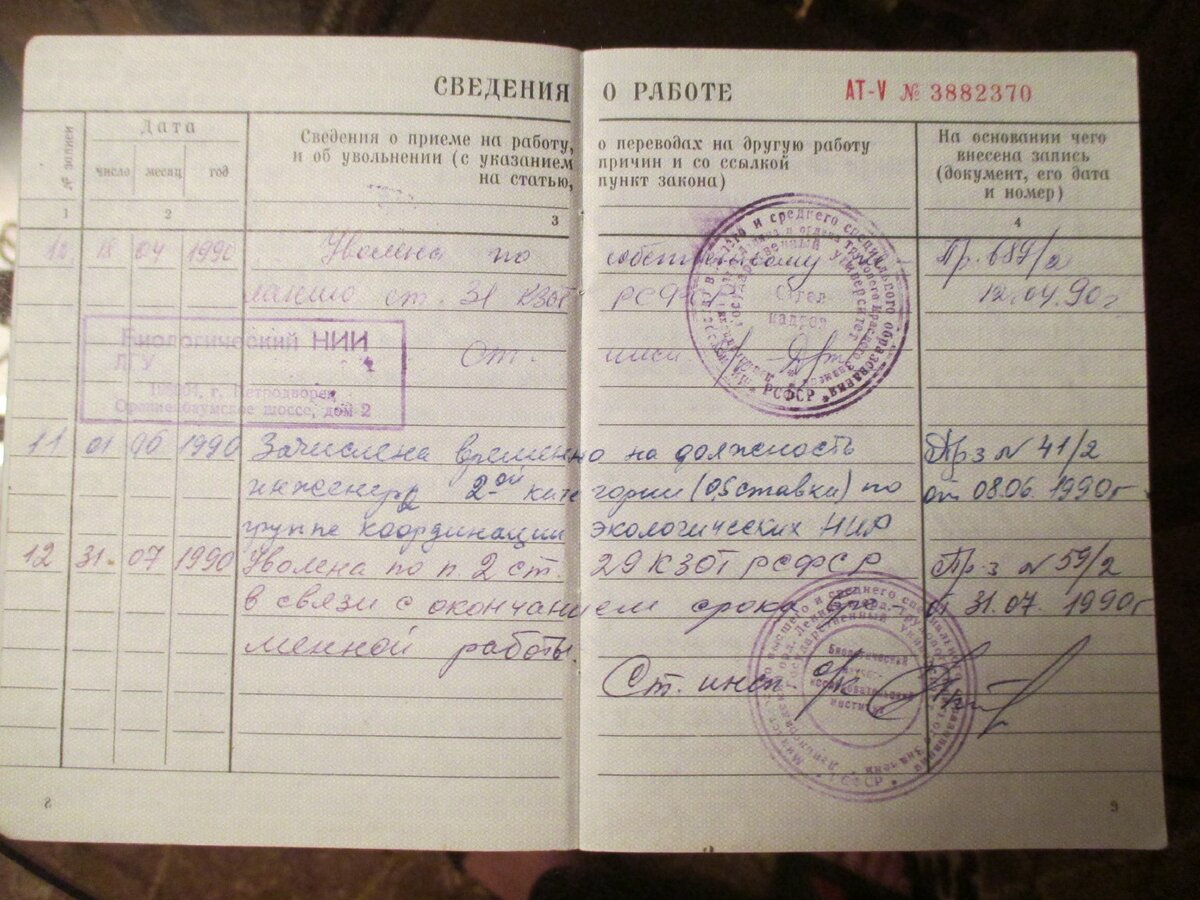 СВЕДЕНИЯ О РАБОТЕ
АТ-V № 3882370
№ записи
Дата
число месяц год
Сведения о приеме на работу, о переводах на другую работу
и об увольнении (с указанием причин и со ссылкой
на статью, пункт закона)
На основании чего
внесена запись
(документ, его дата
и номер)
1 2 3 4
18 04 1990 Уволена по собственному Пр. 689/2
желанию ст. 31 КЗОТ РСФСР 12.04.90г
Отдел
кадров
РСФСР
Биологический НИИ
ЛГУ
г. Петродворец
Ораниенбаумское шоссе, дом 2
11 01 06 1990 Зачислена временно на должность Пр-з № 41/2
инженера 2-ой категории (0,5 ставки) по от 08.06. 1990г.
группе координации экологических НИР
12 31. 07 1990 Уволена по п 2 ст. 29 КЗОТ РСФСР Пр-з № 59/2
в связи с окончанием срока вре- от 31.07. 1990г
менной работы.
Ст. инсп о/к
Биологический
институт
8 9